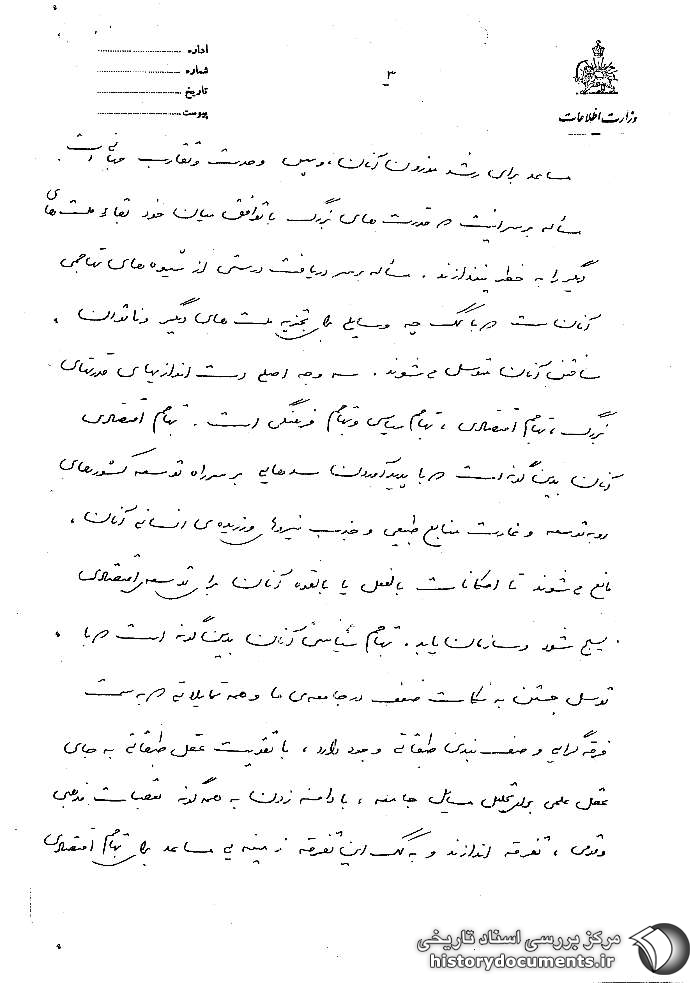 اداره
شماره
تاریخ
پیوست
۳
وزارت اطلاعات
مساعد برای رشد موزون آنان، و سپس وحدت و تقارب جهانی است.
مسأله بر سر اینست که قدرت های بزرگ با توافق میان خود بقاء ملت های
دیگر را به خطر نیندازند. مسأله بر سر دریافت درستی از شیوه های تهاجمی
آنان است که با کمک چه وسایلی برای تجزیه ملت های دیگر و ناتوان
ساختن آنان متوسل می شوند. سه وجه اصلی دست اندازیهای قدرتهای
بزرگ، تهاجم اقتصادی، تهاجم سیاسی و تهاجم فرهنگی است. تهاجم اقتصادی
آنان بدین گونه است که با پدید آوردن سدهایی بر سر راه توسعه کشورهای
رو به توسعه و غارت منابع طبیعی و جذب نیروهای ورزیده ی انسانی آنان،
مانع می شوند تا امکانات بالفعل یا بالقوه آنان برای توسعه اقتصادی
بسیج شود و سازمان یابد. تهاجم سیاسی آنان بدین گونه است که با
توسل جستن به نکات ضعف در جامعه ی ما و همه تمایلاتی که به سمت
فرقه گرایی و صف بندی طبقاتی وجود دارد، با تقویت عقل طبقاتی به جای
عقل علمی برای تحلیل مسایل جامعه، با دامن زدن به همه گونه تعصبات مذهبی
و قومی، تفرقه اندازند و به کمک این تفرقه زمینه یی مساعد برای تهاجم اقتصادی
مرکز بررسی اسناد تاریخی
historydocuments.ir